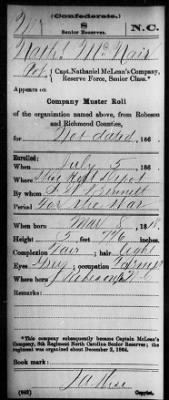 (Confederate.)
S
N.C.
Senior Reserves.
Nathl McNair
Pvt, Capt. Nathaniel McLean's Company,
Reserve Force, Senior Class.*
Appears on
Company Muster Roll
of the organization named above, from Robeson
and Richmond Counties,
for Not dated, 186
Enrolled:
When July 5, 186
Where Shoe Heel Depot
By
Period For the War
When born 18
Height 5 feet inches
Complexion Fair; hair light
Eyes Gray; occupation Farmer
Where born Robeson
Remarks:
*This company subsequently became Captain McLean's
Company, 8th Regiment North Carolina Senior Reserves; the
regiment was organized about December 2, 1864.
Book mark:
Copyist.